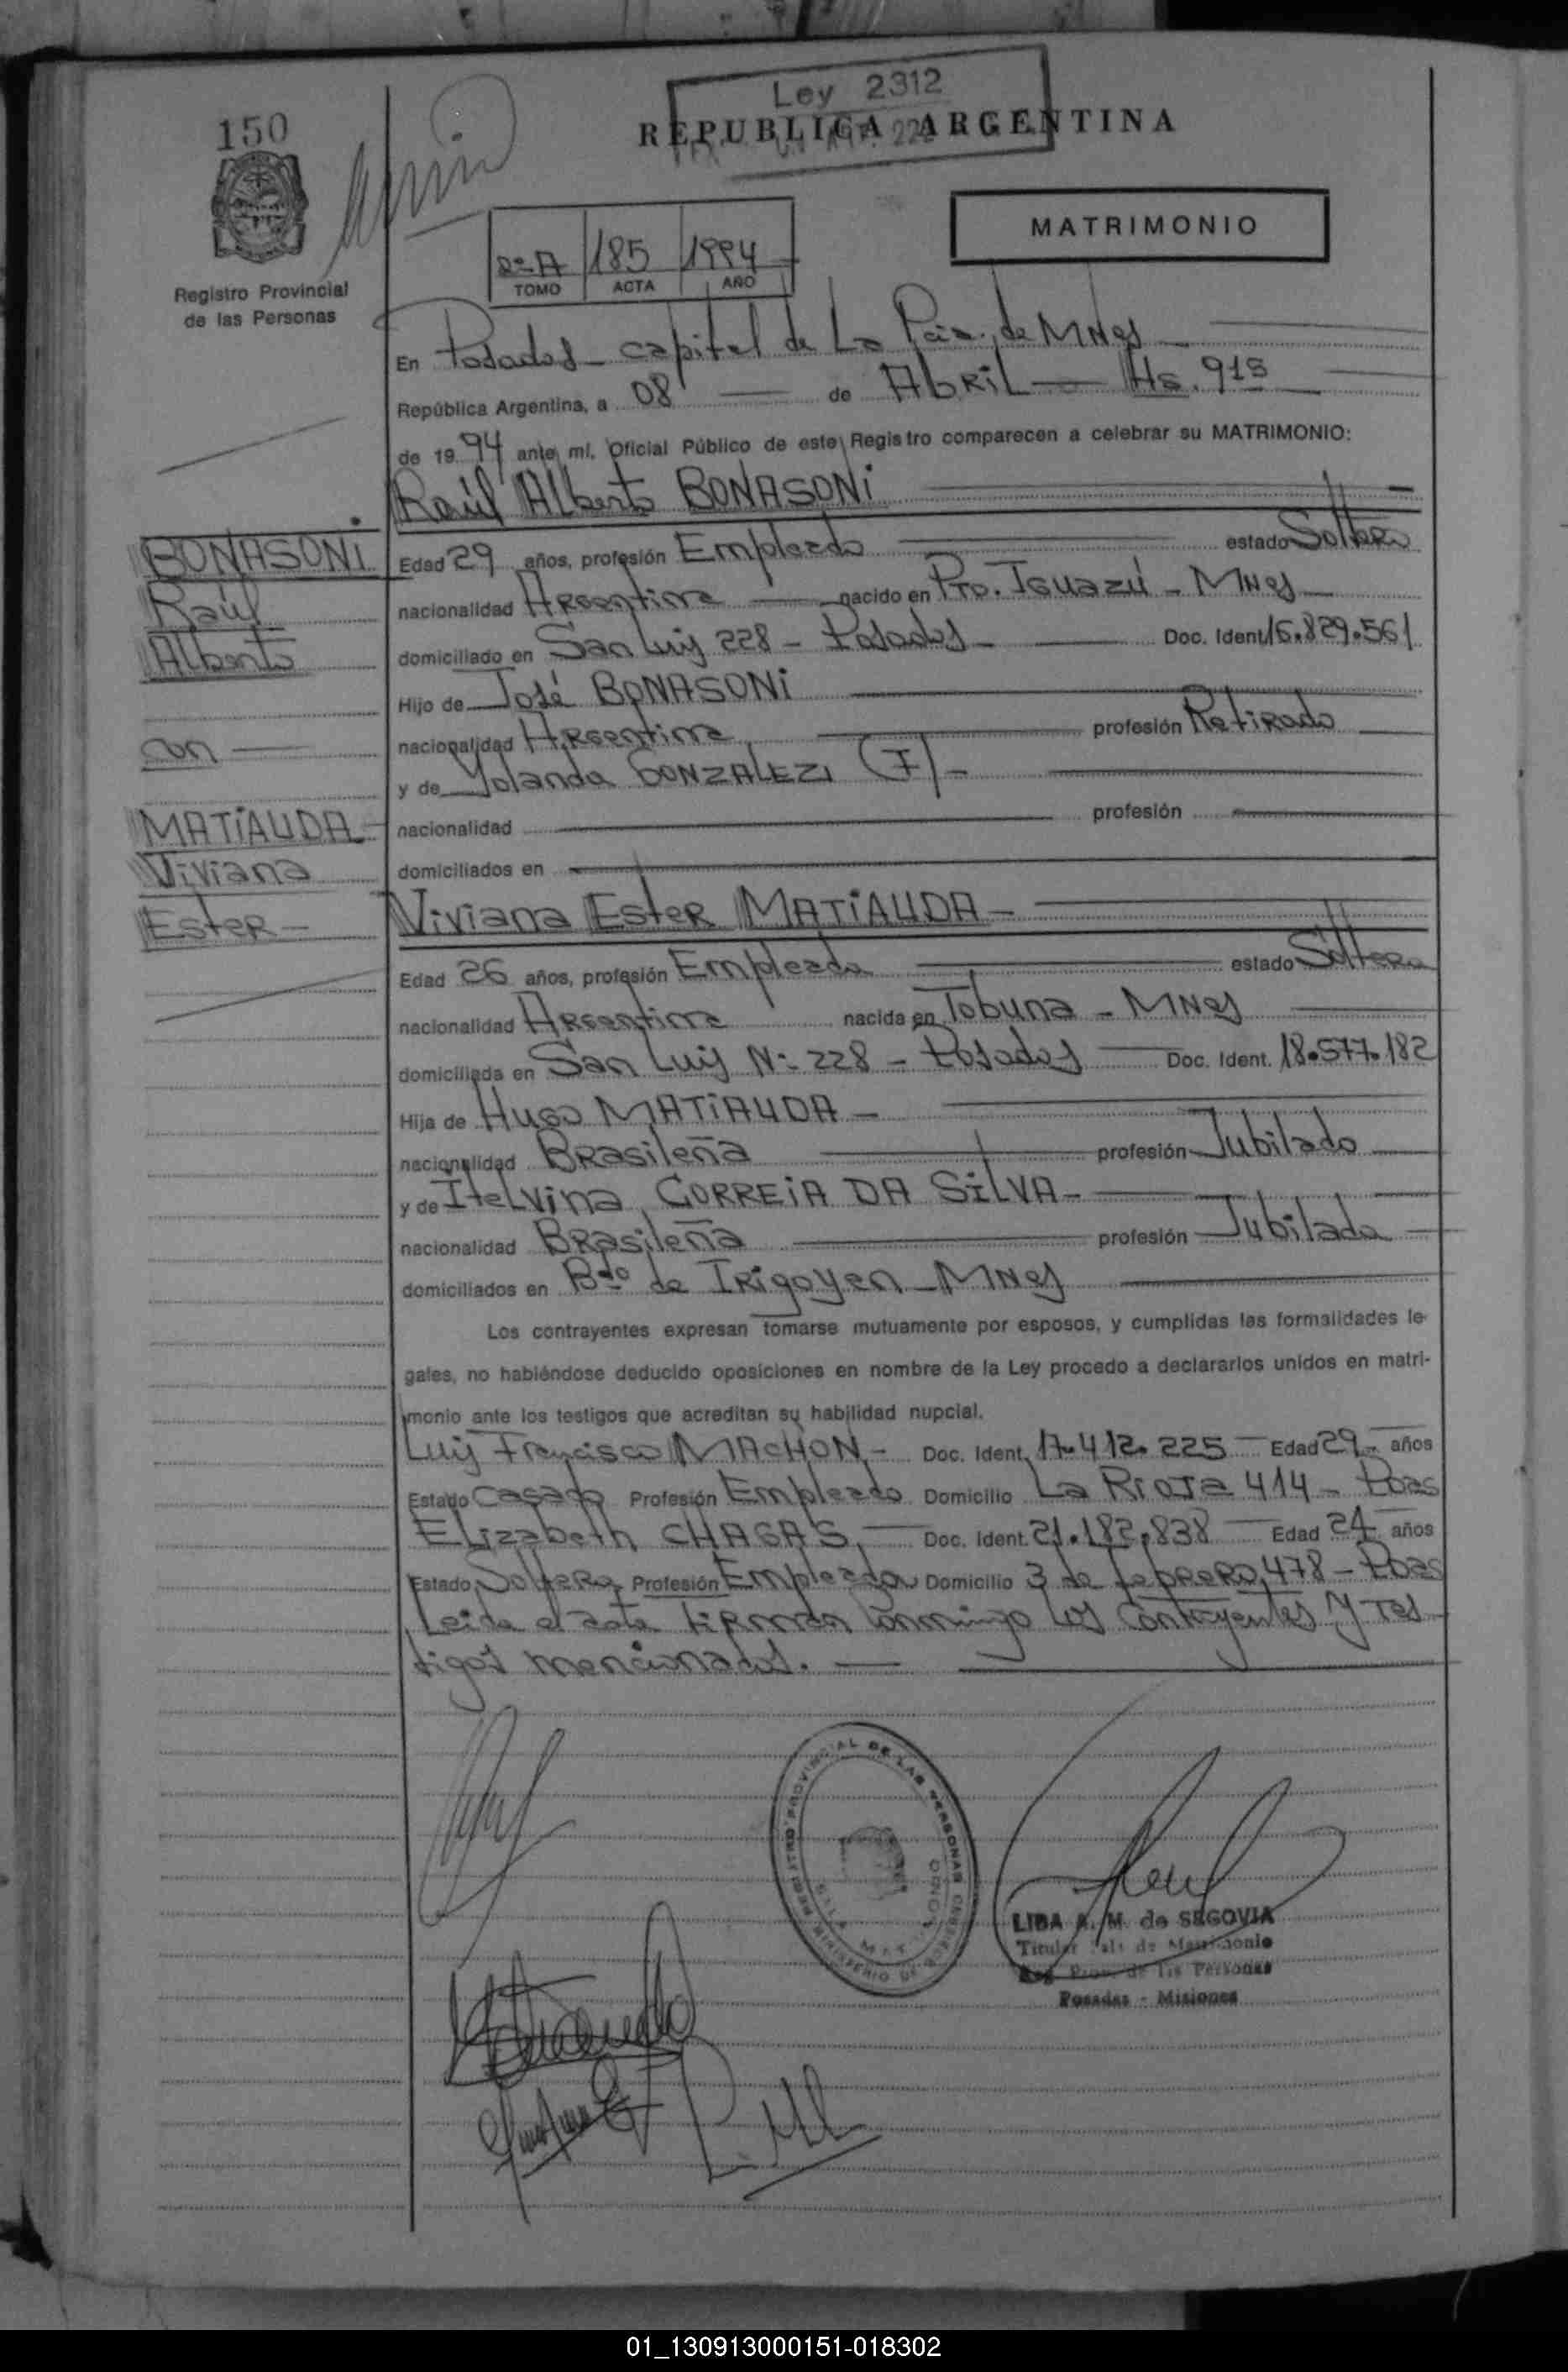 150
Ley 2312
REPUBLICA ARGENTINA
MATRIMONIO
2º A 185 1994
TOMO ACTA AÑO
Registro Provincial
de las Personas
En Posadas - capital de La Pcia. de MNes
República Argentina, a 08 de ABRIL Hs. 915
de 1994 ante mí, Oficial Público de este Registro comparecen a celebrar su MATRIMONIO:
Raúl Alberto BONASONI
BONASONI
Raúl
Alberto
con
MATIAUDA
Viviana
Ester -
Edad 29 años, profesión Empleado estado Soltero
nacionalidad Argentina nacido en Pto. Iguazú - MNes
domiciliado en San Luis 228 - Posadas - Doc. Ident. 16.829.561
Hijo de José BONASONI
nacionalidad Argentina profesión Retirado
y de Yolanda GONZALEZ
nacionalidad profesión
domiciliados en
Viviana Ester MATIAUDA -
Edad 26 años, profesión Empleada estado Soltera
nacionalidad Argentina nacida en Tobuna - MNes
domiciliada en San Luis Nº 228 - Posadas Doc. Ident. 18.577.182
Hija de Hugo MATIAUDA -
nacionalidad Brasileña profesión Jubilado
y de Itelvina CORREIA DA SILVA -
nacionalidad Brasileña profesión Jubilada
domiciliados en Bdo de Irigoyen - MNes
Los contrayentes expresan tomarse mutuamente por esposos, y cumplidas las formalidades le-
gales, no habiéndose deducido oposiciones en nombre de la Ley procedo a declararlos unidos en matri-
monio ante los testigos que acreditan su habilidad nupcial.
Luis Francisco MACHON - Doc. Ident. 17.412.225 Edad 29 años
Estado Casado Profesión Empleado Domicilio La Rioja 414 - Pdas
Elizabeth CHAGAS Doc. Ident. 21.182.838 Edad 24 años
Estado Soltera Profesión Empleada Domicilio 3 de febrero 478 - Pdas
Leida el acta firman conmigo los Contrayentes y tes
tigos mencionados.
REGISTRO PROVINCIAL DE LAS PERSONAS
MINISTERIO DE GOBIERNO
LIDA A. M. de SEGOVIA
Titular de Matrimonio
Reg. Prov. de las Personas
Posadas - Misiones
01_130913000151-018302